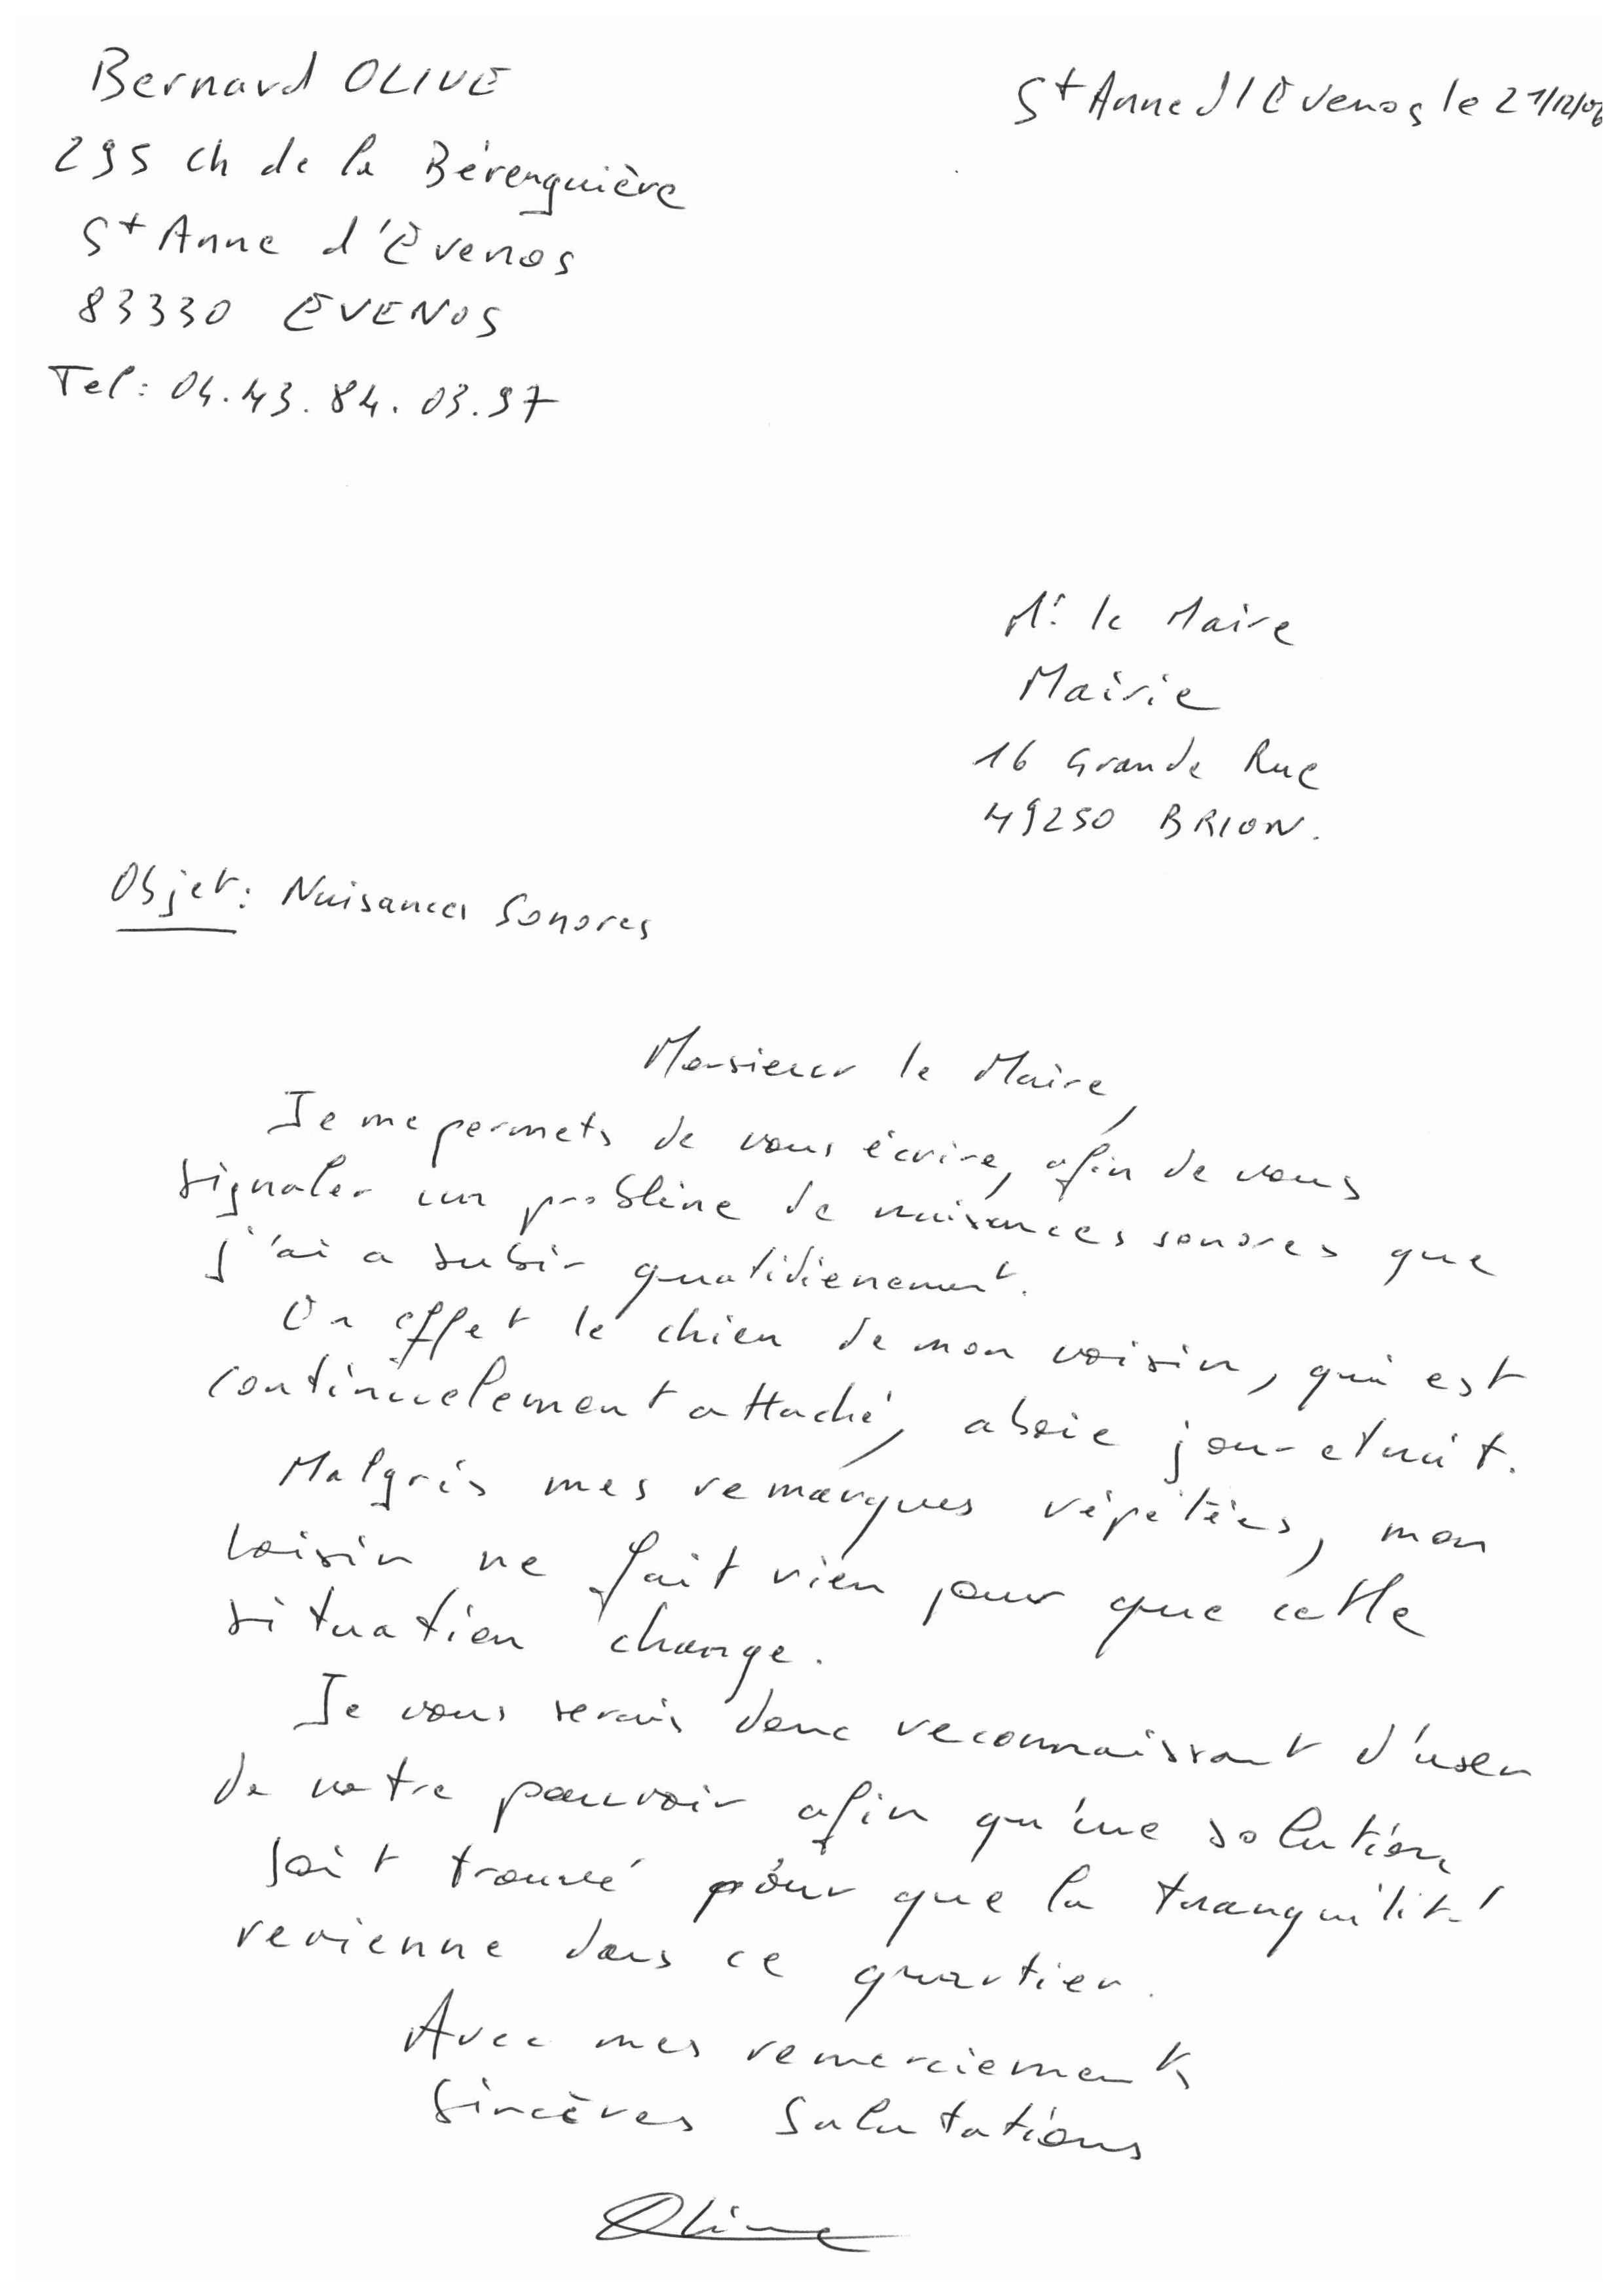 Bernard OLIVE
St Anne d'Evenos le 21/12/06
295 ch de la Bérenguière
St Anne d'Evenos
83330 EVENOS
Tel: 04.43.84.03.97
Mr le Maire
Mairie
16 Grande Rue
49250 BRION.
Objet: Nuisances Sonores
Monsieur le Maire,
Je me permets de vous écrire, afin de vous
signaler un problème de nuisances sonores que
j'ai a subir quotidienement.
En effet le chien de mon voisin, qui est
continuelement attaché, aboie jour et nuit.
Malgrés mes remarques répétées, mon
voisin ne fait rien pour que cette
situation change.
Je vous serais donc reconnaissant d'user
de votre pouvoir afin qu'une solution
soit trouvé pour que la tranquilité
revienne dans ce quartier.
Avec mes remerciements
Sincères Salutations
Olive